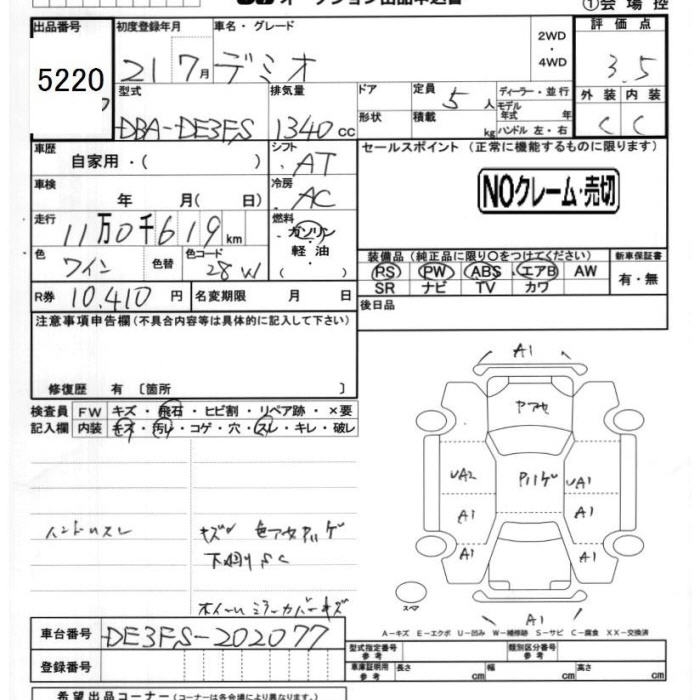 オークション出品申込書
①会場控
出品番号 初度登録年月 車名・グレード 2WD・4WD 評価点
5220 21 7月 デミオ 3.5
型式 排気量 ドア 定員 5人 ディーラー・並行 外装 内装
DBA-DE3FS 1340cc 形状 積載 kg モデル年式 年 C C
ハンドル 左・右
車歴 自家用・( ) シフト AT セールスポイント (正常に機能するものに限ります)
車検 年 月( 日) 冷房 AC
NOクレーム・売切
走行 11万0千619km 燃料 ガソリン・軽油・( )
色 ワイン 色替 色コード 28W
装備品(純正品に限り○をつけてください) 新車保証書
PS PW ABS エアB AW 有・無
SR ナビ TV カワ
R券 10,410円 名変期限 月 日 後日品
注意事項申告欄(不具合内容等は具体的に記入して下さい)
修復歴 有 〔箇所 〕
検査員 FW キズ・飛石・ヒビ割・リペア跡・×要
記入欄 内装 キズ・汚レ・コゲ・穴・スレ・キレ・破レ
A1
UA2 UA1
A1 A1
A1 A1
A1
ハンドルスレ
下廻りSC
ホイールミラーカバーキズ
スペア
A-キズ E-エクボ U-凹み W-補修跡 S-サビ C-腐食 XX-交換済
車台番号 DE3FS-202077
型式指定番号 参考 類別区分番号 参考
登録番号 車庫証明用 参考 長さ cm 幅 cm 高さ cm
希望出品コーナー(コーナーは各会場により異なります。)